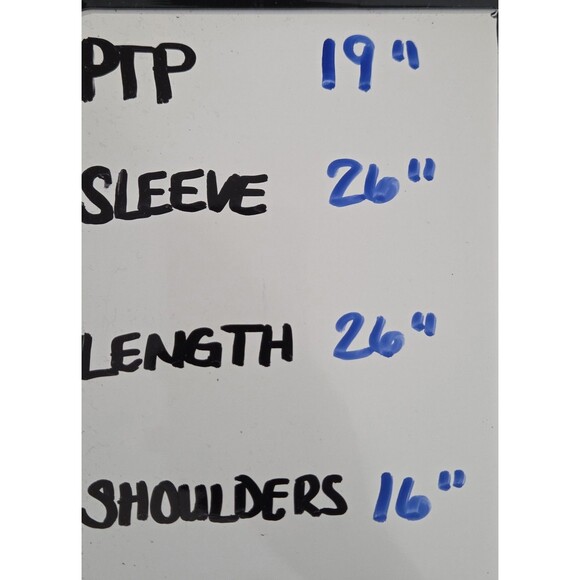 PTP 19"
SLEEVE 26"
LENGTH 26"
SHOULDERS 16"